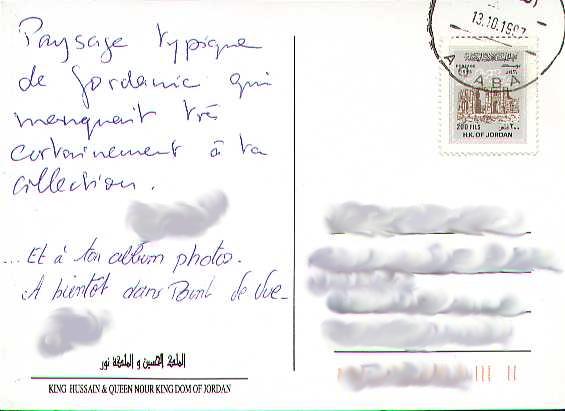 Paysage typique
de Jordanie qui
manquait très
certainement à ta
collection.
... Et à ton album photos.
A bientôt dans Point de Vue_
الملك الحسين و الملكة نور
KING HUSSAIN & QUEEN NOUR KING DOM OF JORDAN
13.10.1997
A ABA
POSTAGE
200 FILS ٢٠٠ فلس
H.K. OF JORDAN